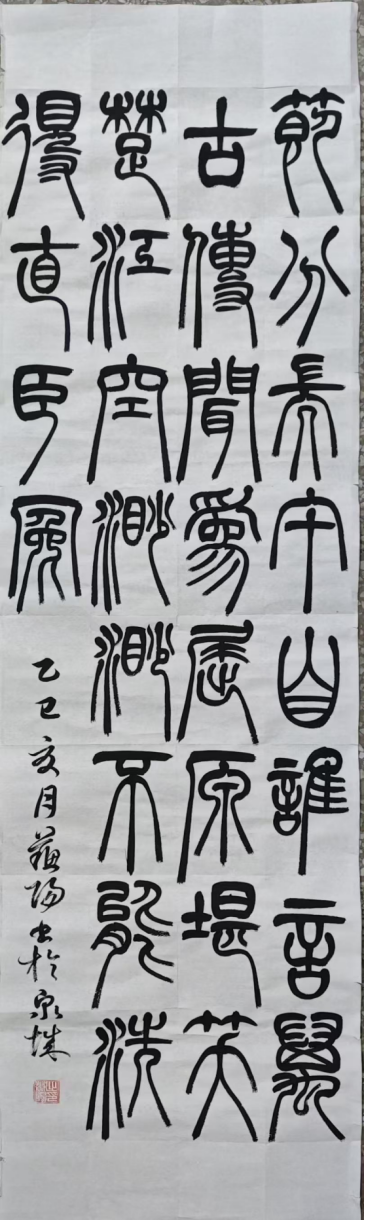 節分耑午自誰言萬
古傳聞為屈原堪笑
楚江空渺渺不能洗
得直臣冤
乙巳夏月蘇陽書於泉城